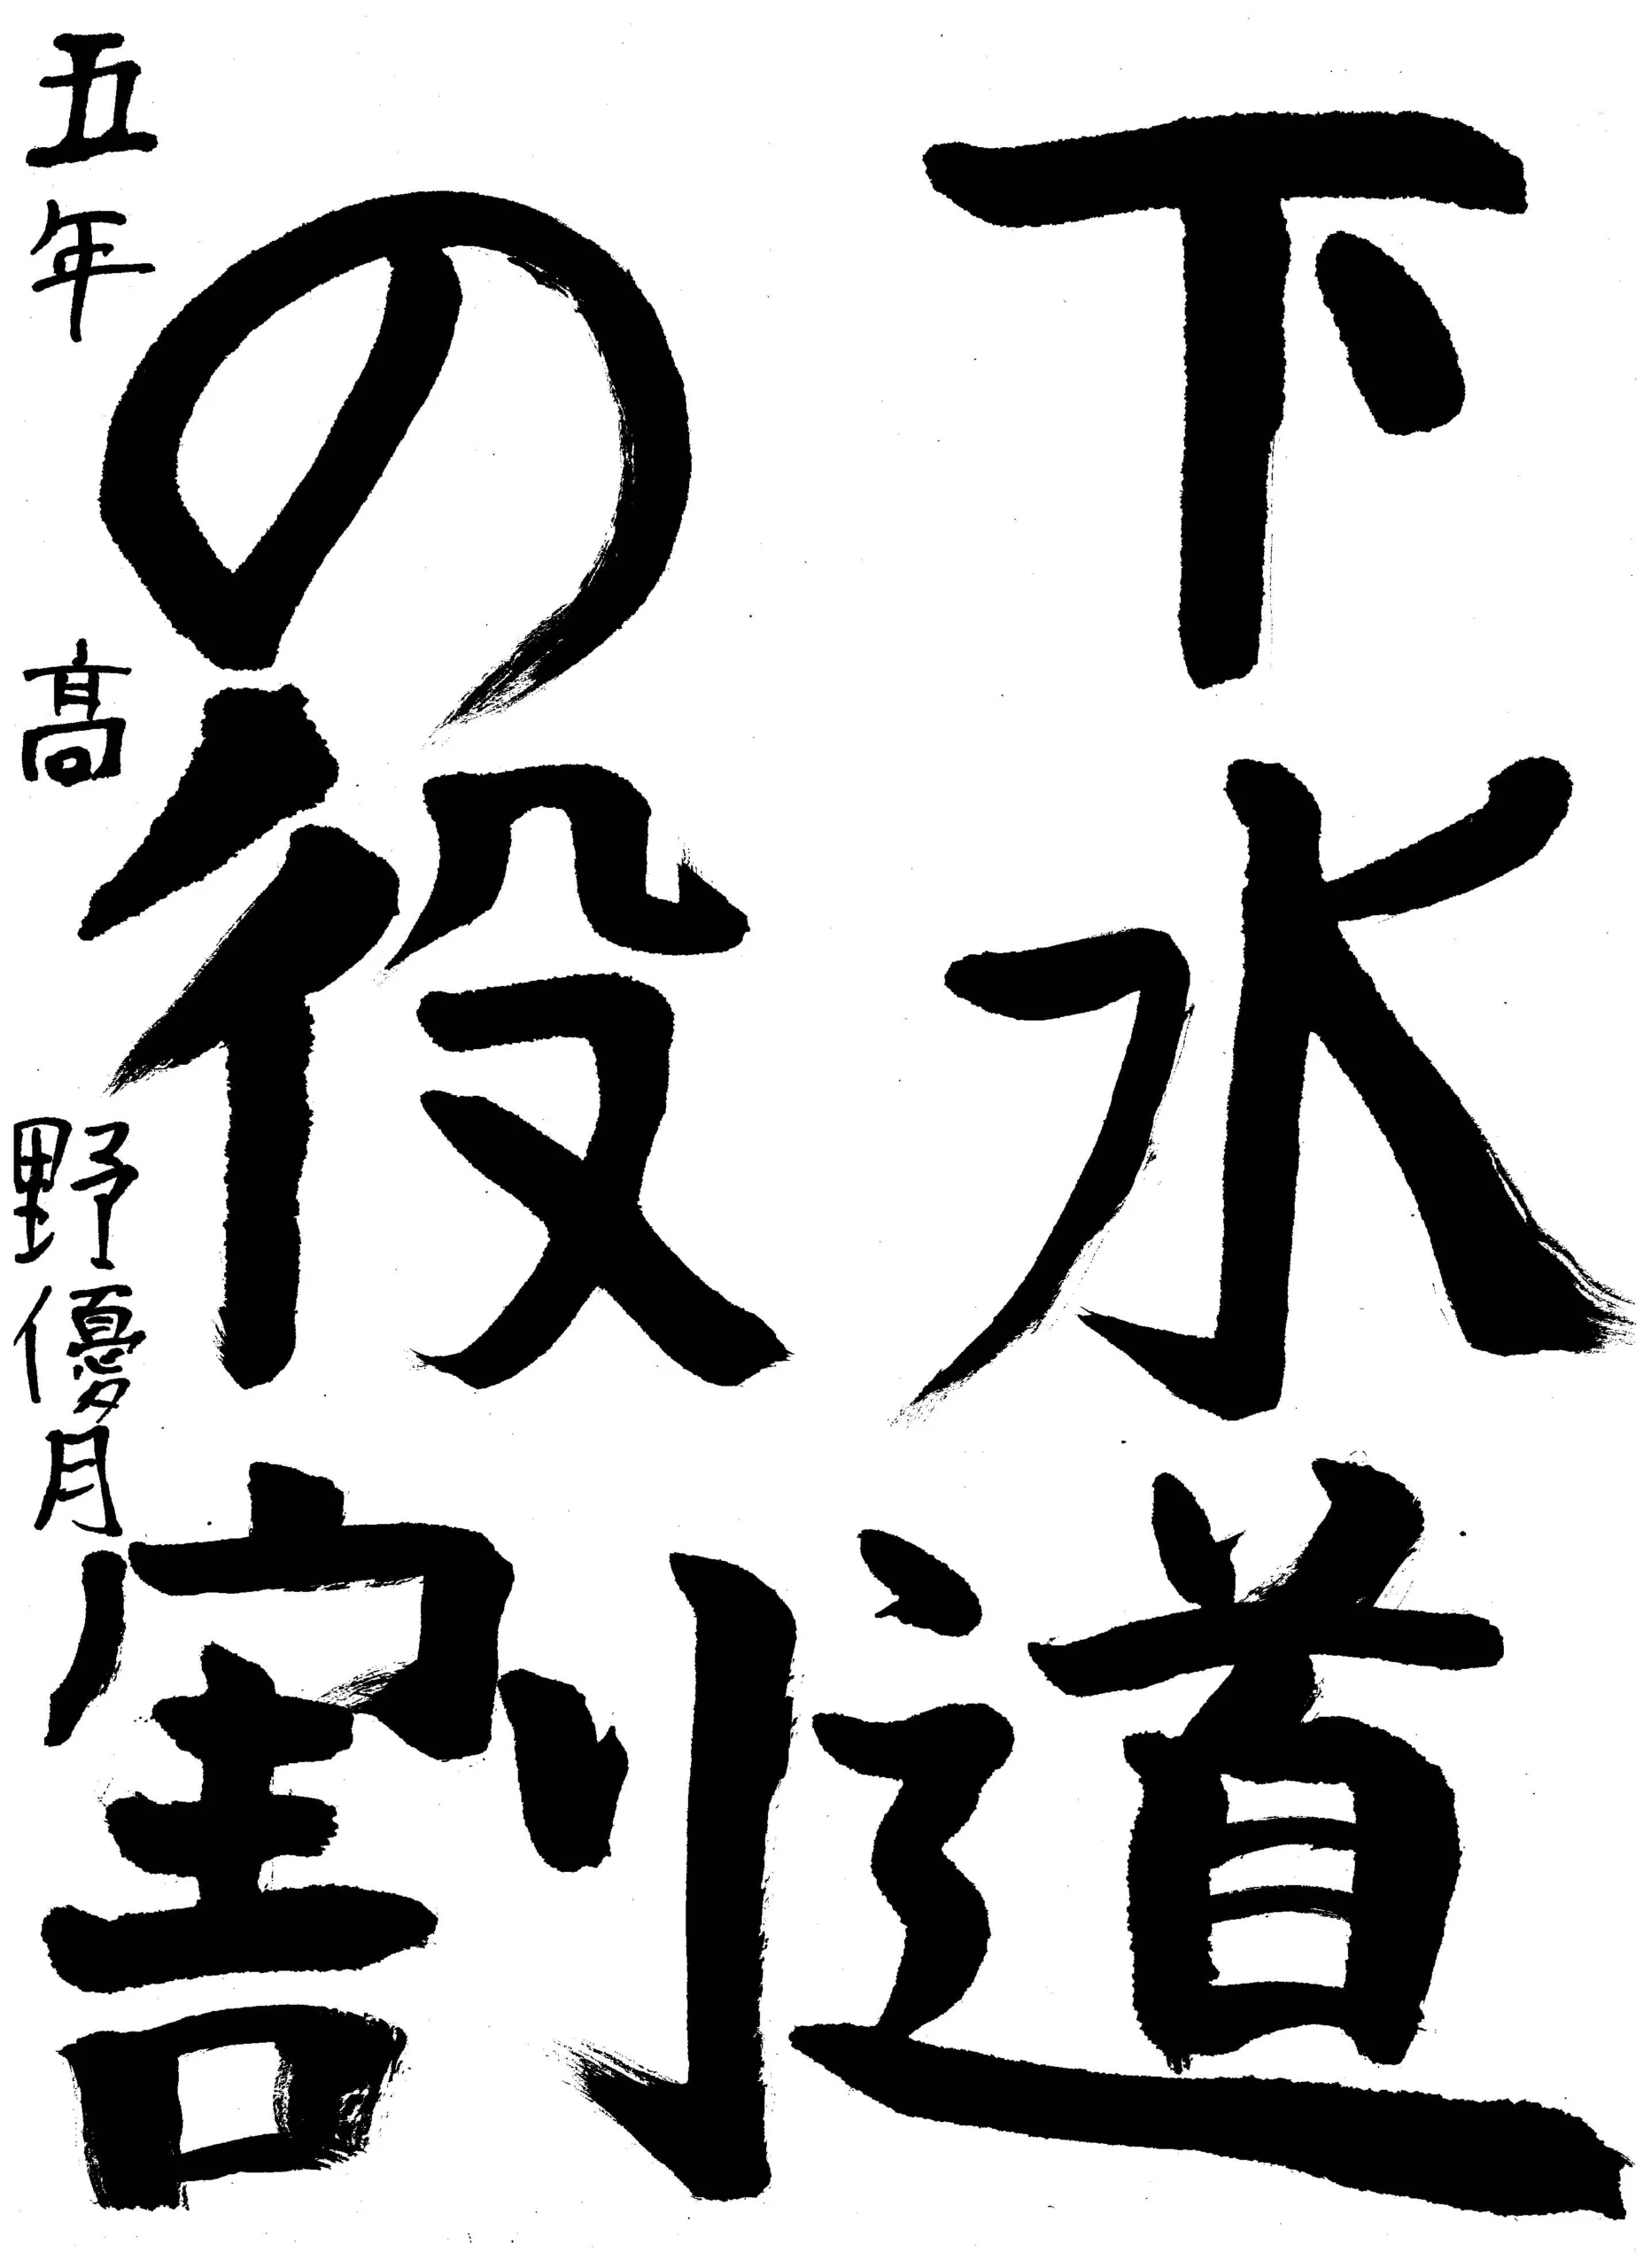 下水道
の役割
五年 髙野優月